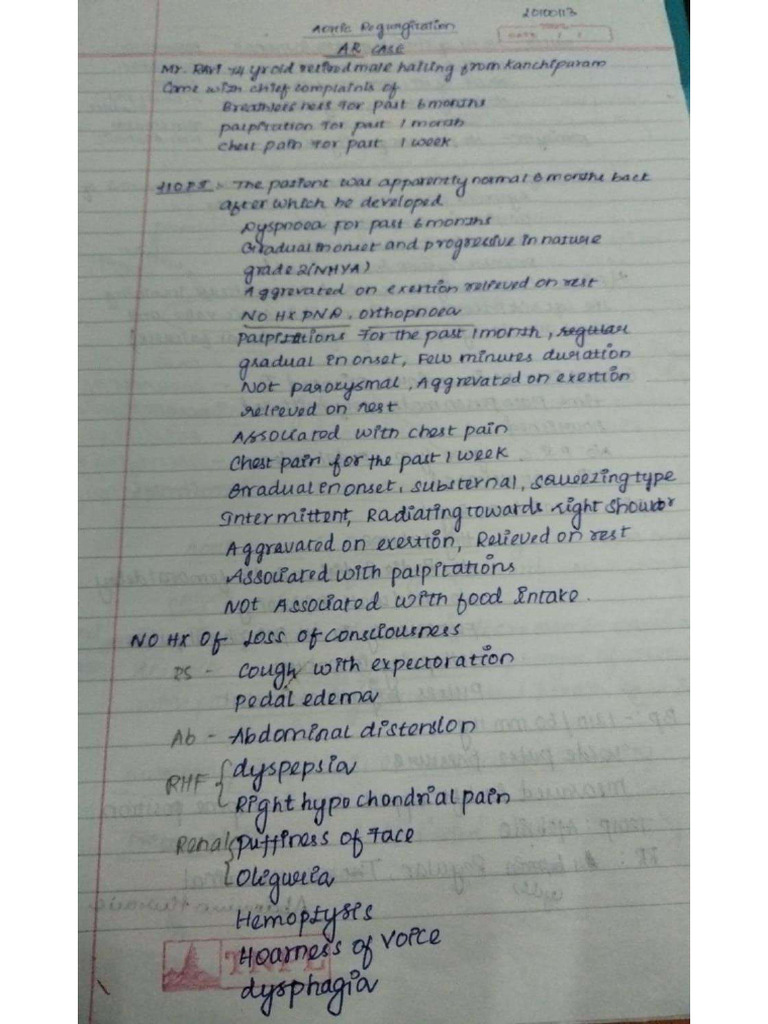 20100113
Aortic Regurgitation
AR CASE
Mr. Ravi 74 yr old retired male hailing from Kanchipuram
Came with chief complaints of
Breathlessness for past 6 months
palpitation for past 1 month
chest pain for past 1 week
HOPI :- The patient was apparently normal 6 months back
after which he developed
Dyspnoea for past 6 months
Gradual in onset and progressive in nature
grade 2 (NHYA)
Aggrevated on exertion relieved on rest
NO HX PND, orthopnoea
palpitations for the past 1 month, regular
gradual in onset, Few minutes duration
Not paroxysmal, Aggrevated on exertion
relieved on rest
Associated with chest pain
Chest pain for the past 1 week
Gradual in onset, substernal, squeezing type
Intermittent, Radiating towards right shoulder
Aggravated on exertion, Relieved on rest
Associated with palpitations
Not Associated with food intake.
NO HX Of Loss of consciousness
RS - cough with expectoration
pedal edema
Ab - Abdominal distension
RHF { dyspepsia
Right hypochondrial pain
Renal { puffiness of face
Oliguria
Hemoptysis
Hoarness of voice
dysphagia
TNPL